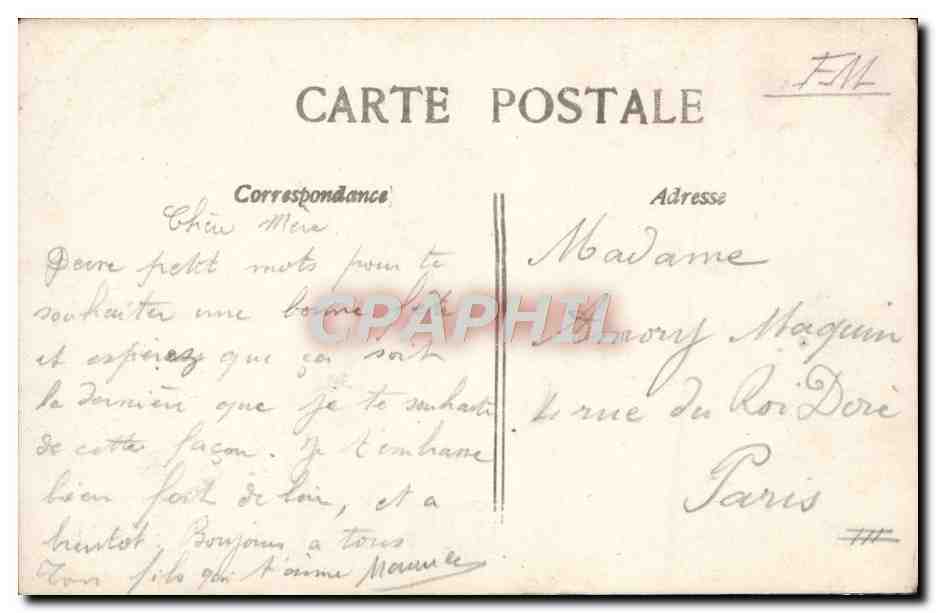 FM
CARTE POSTALE
Correspondance
Chère Mère
Deux petit mots pour te
souhaiter une bonne fête
et espérez que ça soit
la dernière que je te souhaite
de cette façon. Je t'embrasse
bien fort de loin, et a
bientot. Bonjour a tous
Ton fils qui t'aime Maurice
Adresse
Madame
Amory Maquin
4 rue du Roi Doré
Paris
CPAPHIL